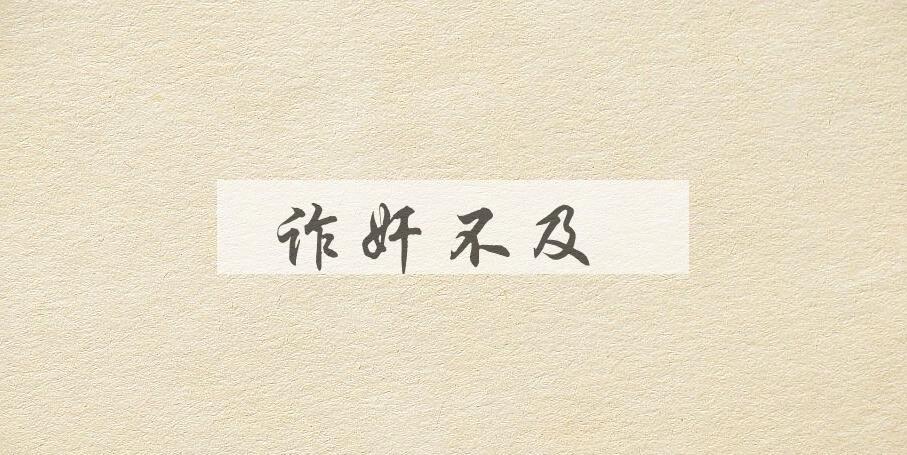 诈奸不及